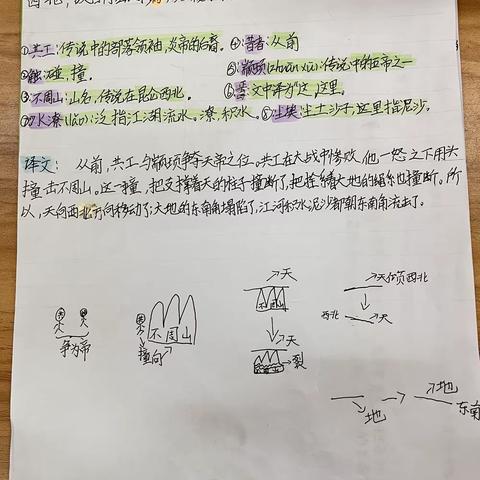 ①共工:传说中的部落领袖,炎帝的后裔。④:昔者:从前
②触:碰,撞。⑤:颛顼(zhuān xū):传说中的五帝之一
③不周山:山名,传说在昆仑西北。
⑦水潦(lǎo):泛指江湖流水。潦,积水。⑧尘埃:尘土沙子,这里指泥沙。
译文: 从前,共工与颛顼争夺天帝之位。共工在大战中惨败,他一怒之下用头
撞击不周山。这一撞,把支撑着天的柱子撞断了,把拴系着大地的绳索也撞断。所
以,天向西北方向移动了;大地的东南角塌陷了,江河积水泥沙都朝东南角流去了。
争为帝
不周山
撞向
天
不周山
天
裂
天倾西北
西北
天
地
地
东南